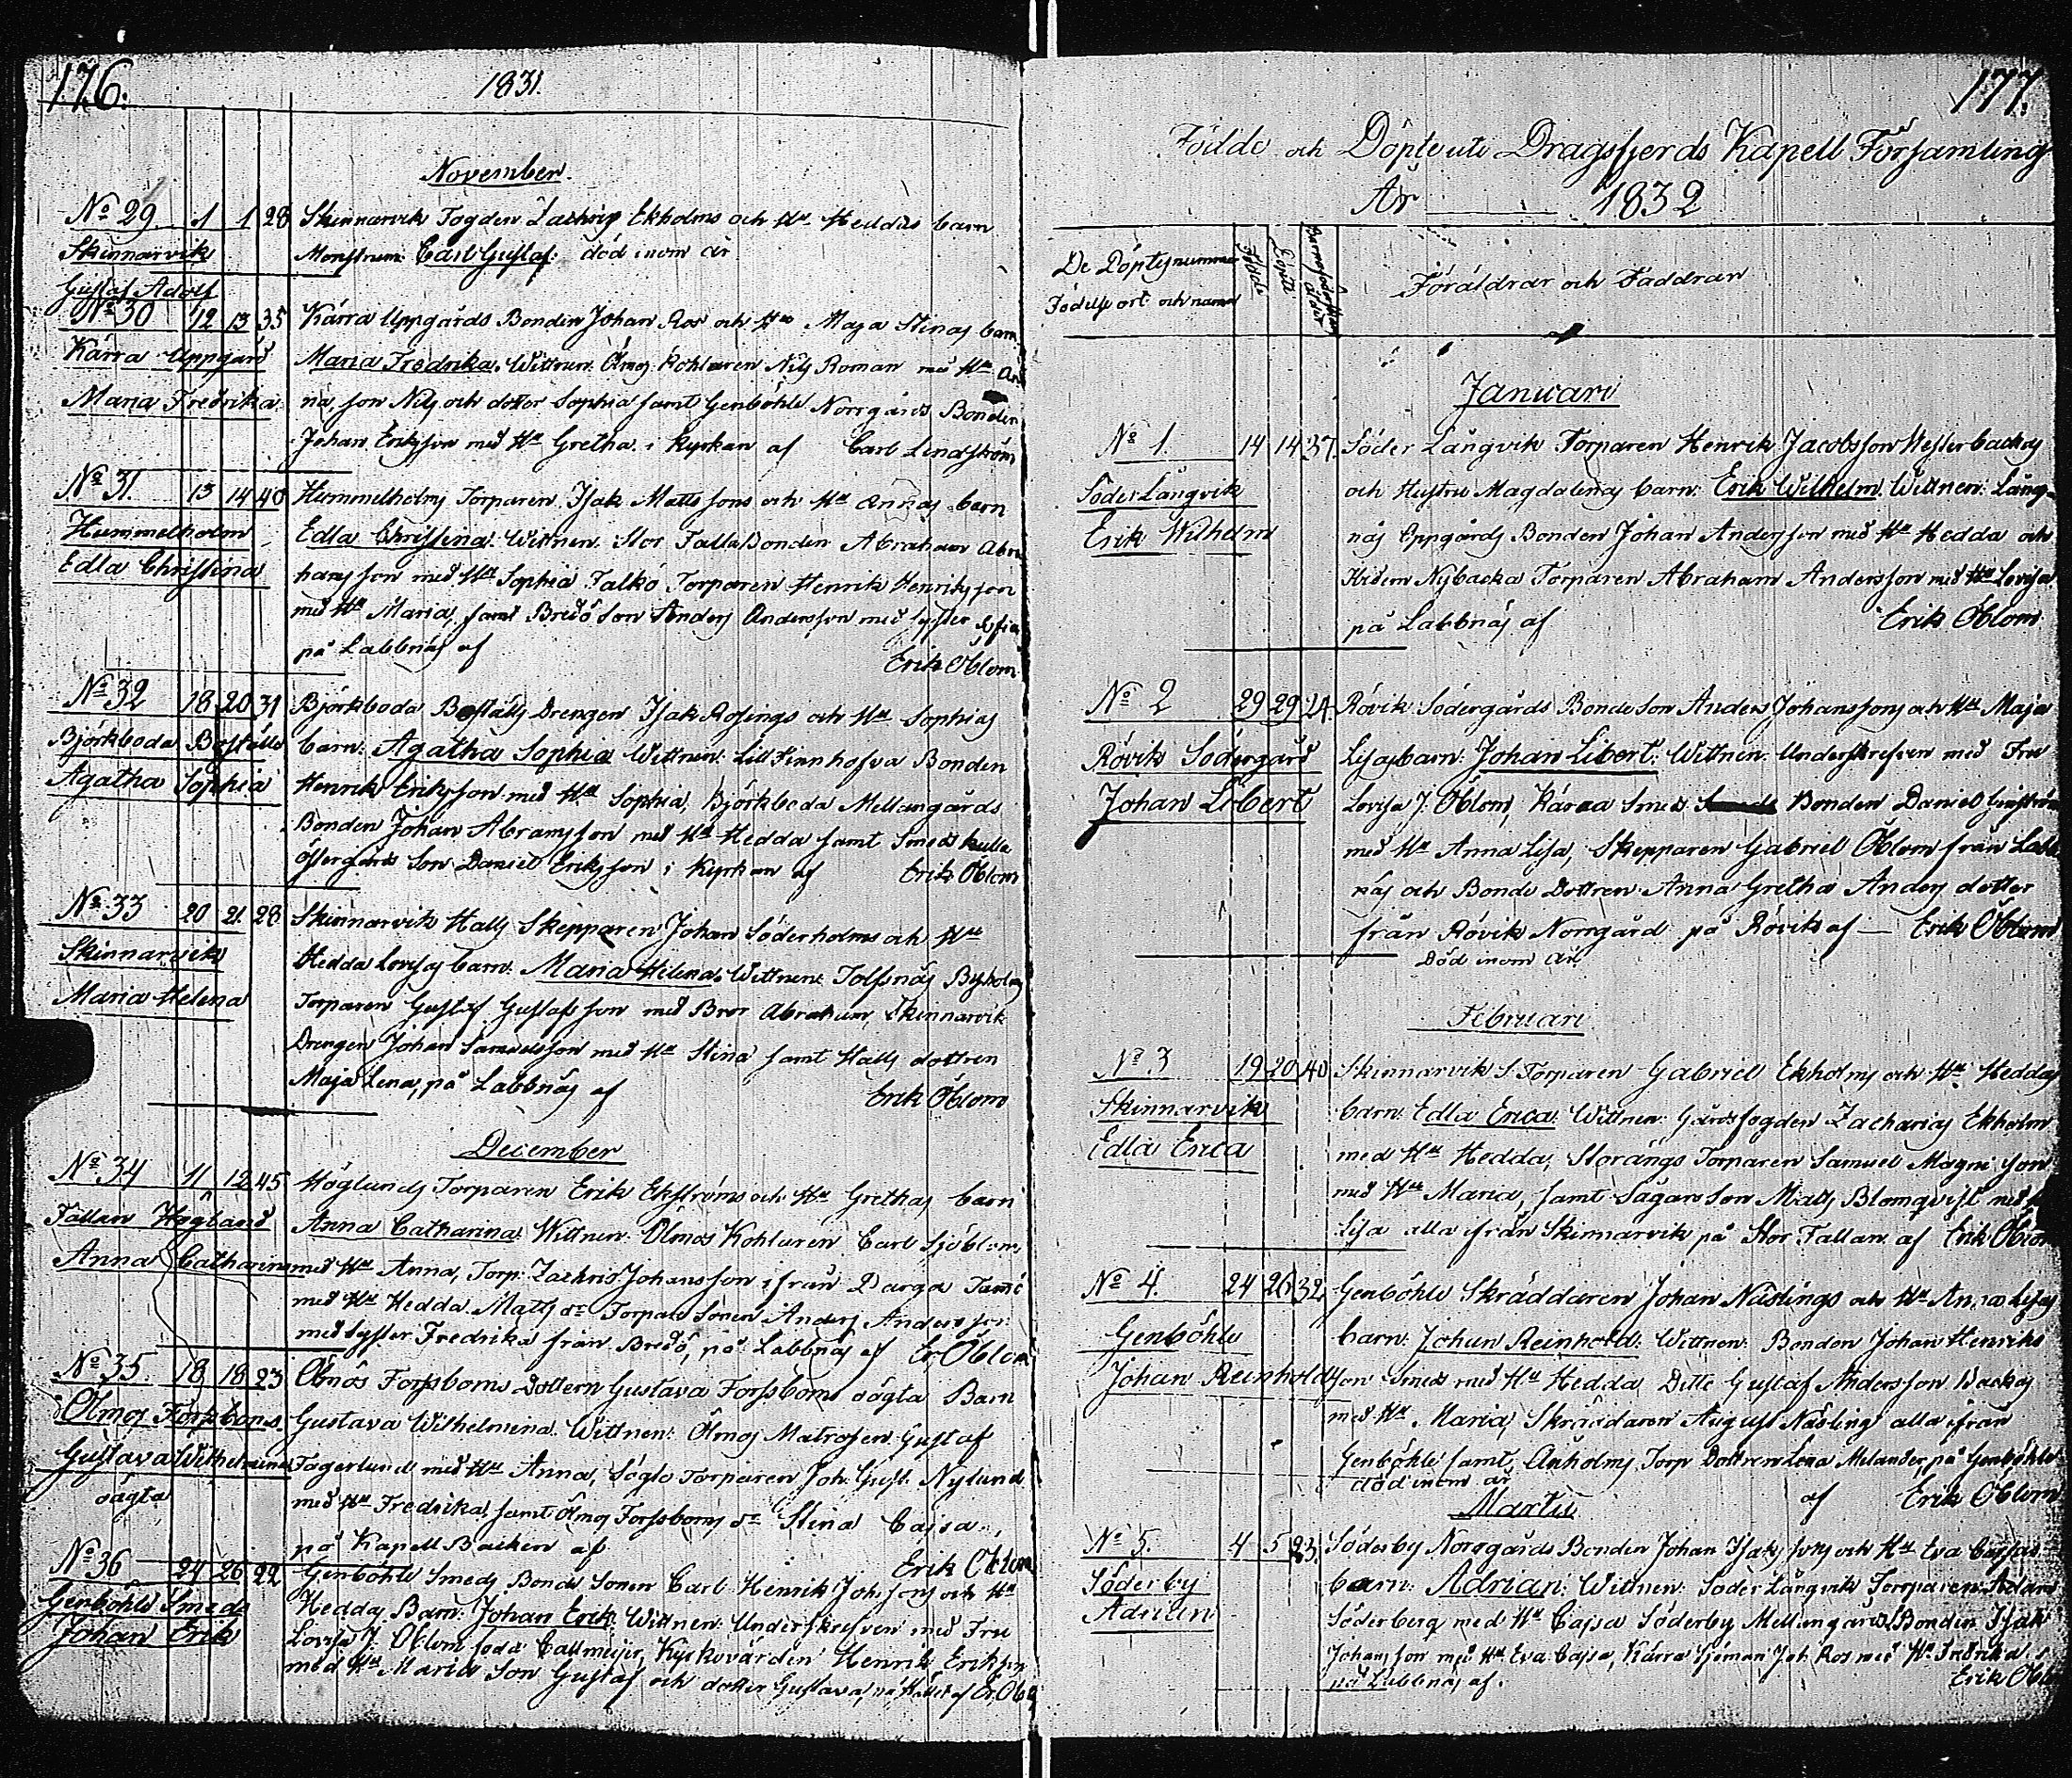 176.
1831.
November.
No 29 1 1 28 Skinnarvik Fogden Zachris Ekholms och Hu Heddas barn
Skinnarvik Monstrum: Carl Gustaf: död inom år
Gustaf Adolf
No 30 12 13 35 Kärra Uppgårds Bonden Johan Ros och Hu Maja Stinas barn
Kärra Uppgård Maria Fredrika. Wittnen: Ölmos Kohlaren Nils Roman med Hu An
Maria Fredrika na, son Nils och dotter Sophia samt Genböhle Norrgårds Bonden
Johan Eriksson med Hu Gretha i Kyrkan af Carl Lindström
No 31. 13 14 40 Hummelholms Torparen Isak Mattssons och Hu Annas barn
Hummelholm Edla Christina. Wittnen: Stor Falla Bonden Abraham Abra
Edla Christina hamsson med Hu Sophia Falkö Torparen Henrik Henriksson
med Hu Maria, samt Bredö Son Anders Andersson med syster
på Labbnäs af Erik Öblom
No 32 18 20 31 Björkboda Boställs Drengen Isak Rosings och Hu Sophias
Björkboda Boställe barn: Agatha Sophia Wittnen: Lill Finnhofva Bonden
Agatha Sophia Henrik Eriksson med Hu Sophia, Björkboda Mellangårds
Bonden Johan Abramsson med Hu Hedda samt Smedskulla
Östergårds Son Daniel Eriksson i Kyrkan af Erik Öblom
No 33 20 21 28 Skinnarvik Halls Skepparen Johan Söderholms och Hu
Skinnarvik Hedda Lovisas barn: Maria Helena. Wittnen: Tolfsnäs Byholms
Maria Helena Torparen Gustaf Gustafsson med Bror Abraham, Skinnarvik
Drengen Johan Samuelsson med Hu Stina samt Halls dottren
Maja Lena, på Labbnäs af Erik Öblom
December
No 34 11 12 45 Höglunds Torparen Erik Ekströms och Hu Grethas barn
Fallan Höglund Anna Catharina Wittnen: Ölmos Kohlaren Carl Sjöblom
Anna Catharina med Hu Anna, Torp: Zachris Johansson ifrån Darga
med Hu Hedda Matts dr Torpare Sonen Anders Andersson
med syster Fredrika från Bredö, på Labbnäs af Er Öblom
No 35. 18 18 23 Ölmos Forssboms Dottern Gustava Forssboms oägta Barn
Ölmos Forssboms Gustava Wilhelmina. Wittnen: Ölmos Matrosen Gustaf
Gustava Wilhelmina Fagerlund med Hu Anna, Söglo Torparen Joh: Gust. Nylund
oägta med Hu Fredrika, samt Ölmos Forssboms dr Stina Cajsa,
på Kapell Backen af Erik Öblom
No 36 24 26 22 Genböhle Smeds Bonde Sonen Carl Henrik Johssons och Hu
Genböhle Smeds Heddas Barn: Johan Erik: Wittnen: Underskrefven med Fru
Johan Erik Lovisa J. Öblom född Callmeijer, Kyrkovärden Henrik Eriksson
med Hu Maria Son Gustaf och dotter Gustava, af Er Öbl
177.
Födde och Döpte uti Dragsfjerds Kapell Församling
År 1832
De Döptes nummer Födelse ort och namn Födde Döpte Barnaföderskans ålder Föräldrar och Faddrar
Januari
No 1. 14 14 37. Söder Långvik Torparen Henrik Jacobsson Westerbackas
Söder Långvik och Hustru Magdalenas barn: Erik Wilhelm. Wittnen: Lång-
Erik Wilhelm näs Oppgårds Bonden Johan Andersson med Hu Hedda och
Ibidem Nybacka Torparen Abraham Andersson med Hu Lovisa
på Labbnäs af Erik Öblom
No 2 29 29 24. Rövik Södergårds Bonde Son Anders Johanssons och Hu Maja
Rövik Södergård Lisas barn: Johan Libert: Wittnen: Underskrefven med Fru
Johan Libert Lovisa J. Öblom, Kärra Smeds Bonden Daniel
med Hu Anna Lisa, Skepparen Gabriel Öblom från Labb
näs och Bonde Dottren Anna Gretha Anders dotter
från Rövik Norrgård på Rövik af — Erik Öblom
Död inom år
Februari
No 3 19 20 40 Skinnarvik S. Torparen Gabriell Ekholms och Hu Heddas
Skinnarvik barn: Edla Erica: Wittnen: Gårdsfogden Zacharias Ekholm
Edla Erica med Hu Hedda, Storängs Torparen Samuel Magni Son
med Hu Maria, samt Sågare Son Matts Blomqvist med
Lisa alla ifrån Skinnarvik på Stor Fallan af Erik Öblom
No 4. 24 26 32 Genböhle Skräddaren Johan Näslings och Hu Anna Lisas
Genböhle barn: Johan Reinhold: Wittnen: Bonden Johan Henriks
Johan Reinhold son Smeds med Hu Hedda, Ditto Gustaf Andersson Backas
med Hu Maria, Skräddaren August Näsling alla ifrån
Genböhle samt Torp Dottren Lena Melander, på Genböhle
död inom år af Erik Öblom
Martii
No 5. 4 5 23. Söderby Norrgårds Bonden Johan Isakssons och Hu Eva Cajsas
Söderby barn: Adrian: Wittnen: Söder Långvik Torparen Adam
Adrian Söderberg med Hu Cajsa Söderby Mellangårds Bonden Isak
Johansson med Hu Eva Cajsa, Kärra Sjöman Joh Ros med Hu Fredrika
på Labbnäs af. Erik Öbl